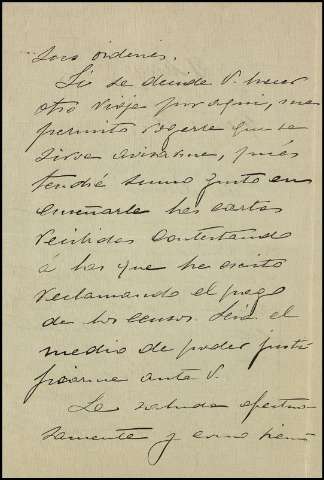 sus órdenes.
Si se decide V. hacer
otro viaje por aquí, me
permito rogarle que se
sirva avisarme, pués
tendré sumo gusto en
enseñarle las cartas
recibidas contestando
á las que he escrito
reclamando el pago
de los censos. Será el
medio de poder justi
ficarme ante V.
Le saluda afectuo
samente y como siem